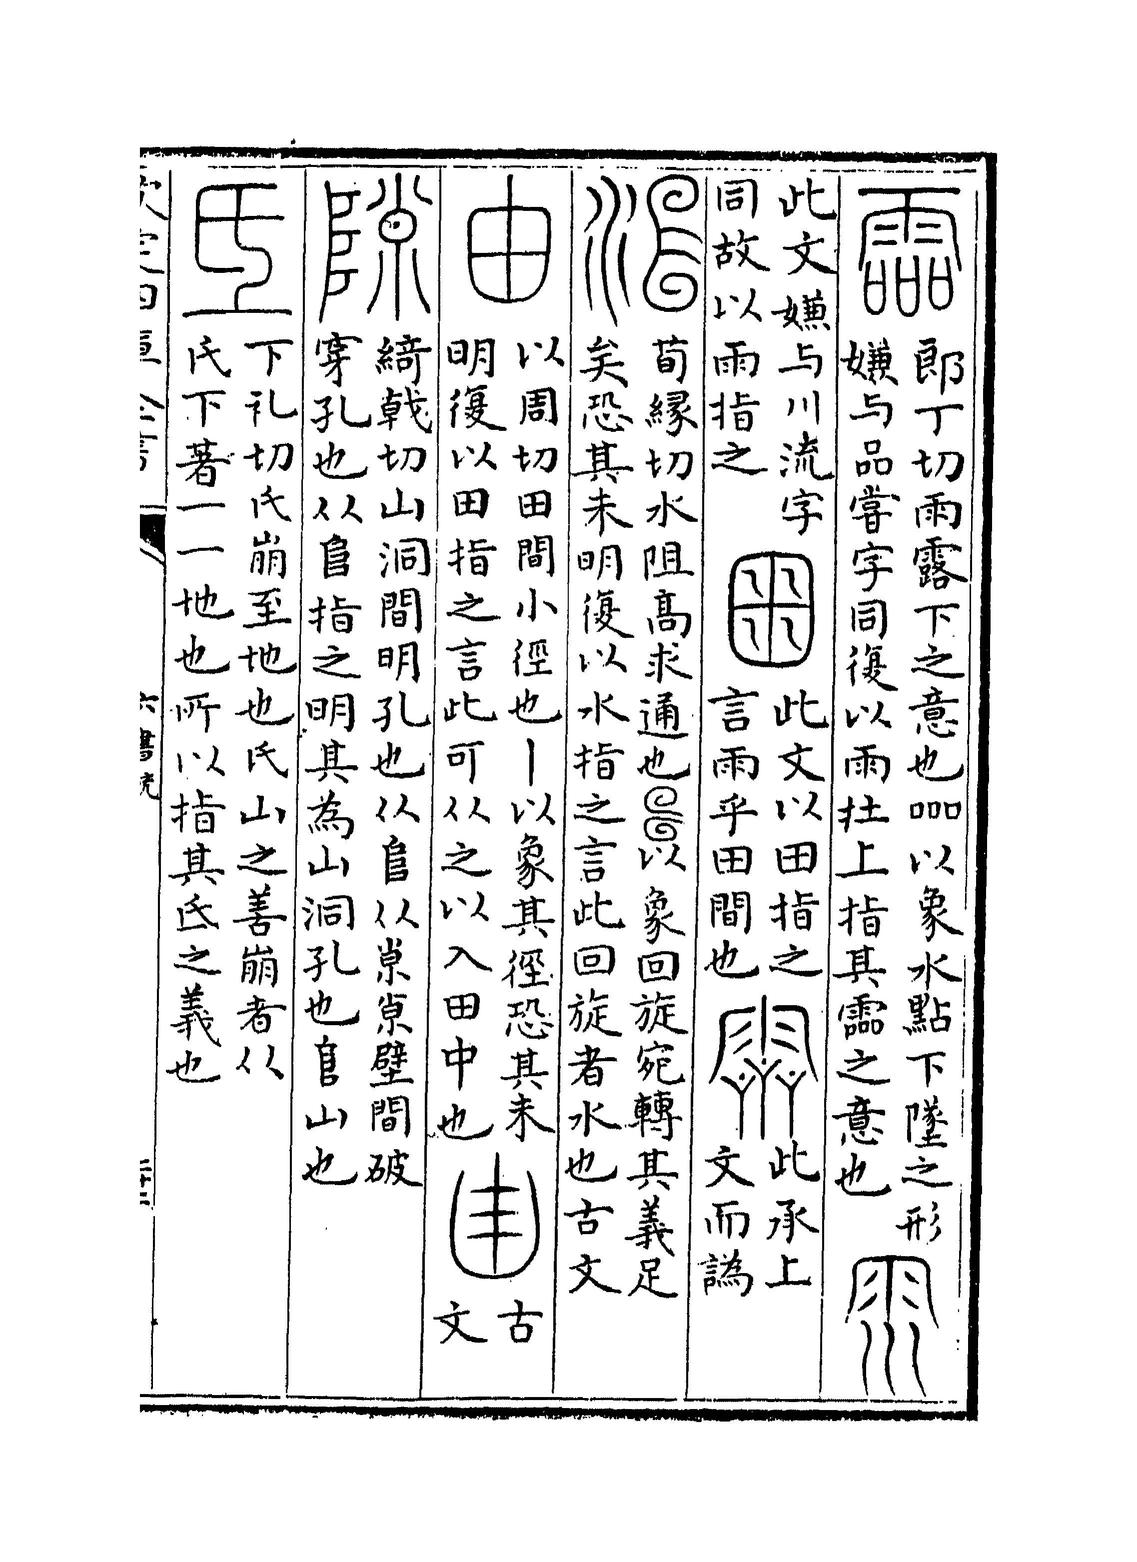 霝
郎丁切雨露下之意也吅以象水點下墜之形
嫌与品嘗字同復以雨在上指其霝之意也
此文嫌与川流字
同故以雨指之
此文以田指之
言雨乎田間也
此承上
文而譌
荀縁切水阻髙求通也以象回旋宛轉其義足
矣恐其未明復以水指之言此回旋者水也古文
由
以周切田間小徑也丨以象其徑恐其未
明復以田指之言此可从之以入田中也
古
文
隙
綺戟切山洞間明孔也从𨸏从𡭴𡭴壁間破
穿孔也从𨸏指之明其為山洞孔也𨸏山也
氐
下礼切氏崩至地也氏山之善崩者从
氏下著一一地也所以指其氐之義也
欽定四庫全書
六書統